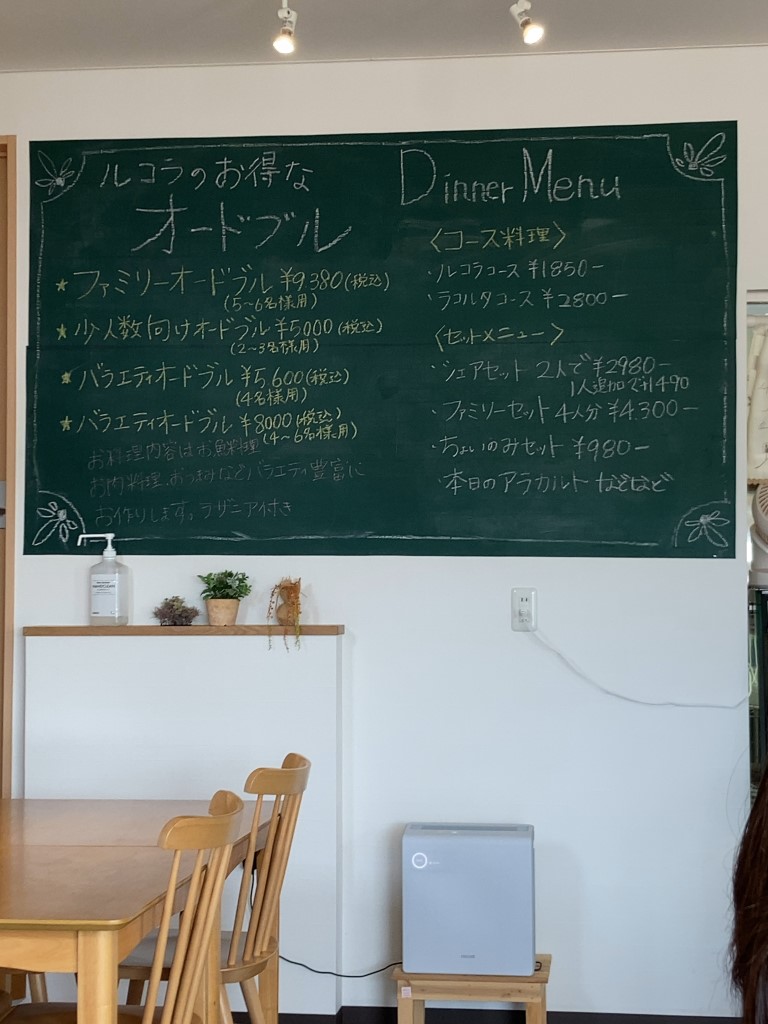 ルコラのお得な
オードブル
★ファミリーオードブル ¥9,380(税込)
(5~6名様用)
★少人数向けオードブル ¥5000(税込)
(2~3名様用)
★バラエティオードブル ¥5,600(税込)
(4名様用)
★バラエティオードブル ¥8000(税込)
(4~6名様用)
お料理内容はお魚料理
お肉料理、おつまみなどバラエティ豊富に
お作りします。ラザニア付き
Dinner Menu
〈コース料理〉
・ルコラコース ¥1850−
・ラコルタコース ¥2800−
〈セットメニュー〉
・シェアセット 2人で¥2980−
1人追加で¥1490
・ファミリーセット 4人分 ¥4,300−
・ちょいのみセット ¥980−
・本日のアラカルト などなど